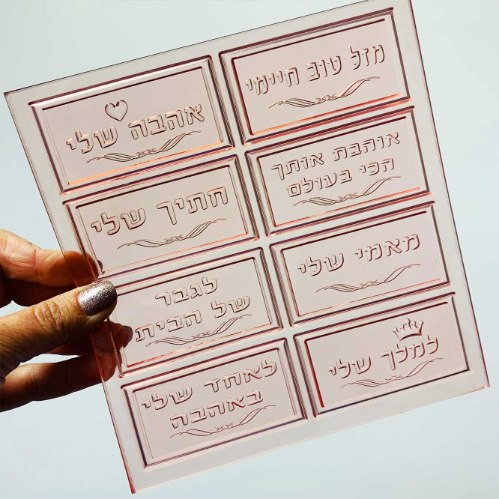 מזל טוב חיימי
אוהבה שלי
אוהבת אותך
הכי בעולם
חתיך שלי
מאמי שלי
לגבר
של הבית
למלך שלי
לאחד שלי
באהבה